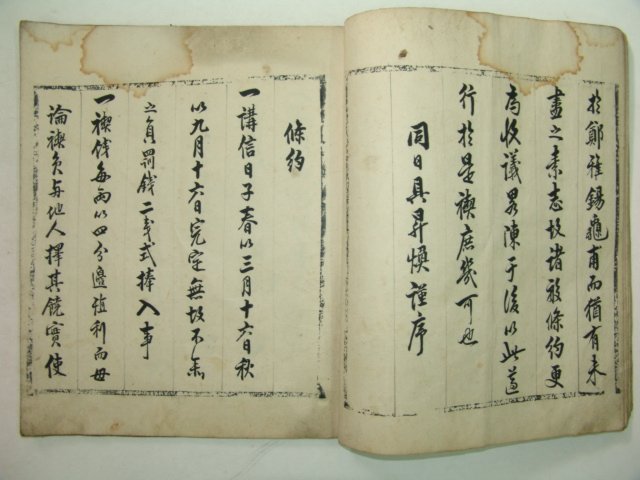 於鄭雅錫龜甫而猶有未
盡之素志故諸般條約更
爲收議略陳于後以此遵
行於是禊庶幾可也
同日具昇煥謹序
條約
一講信日子春以三月十六日秋
以九月十六日完定無故不參
之員罰錢二戔式捧入事
一禊錢每兩以四分邊殖利而毋
論禊員与他人擇其饒實使